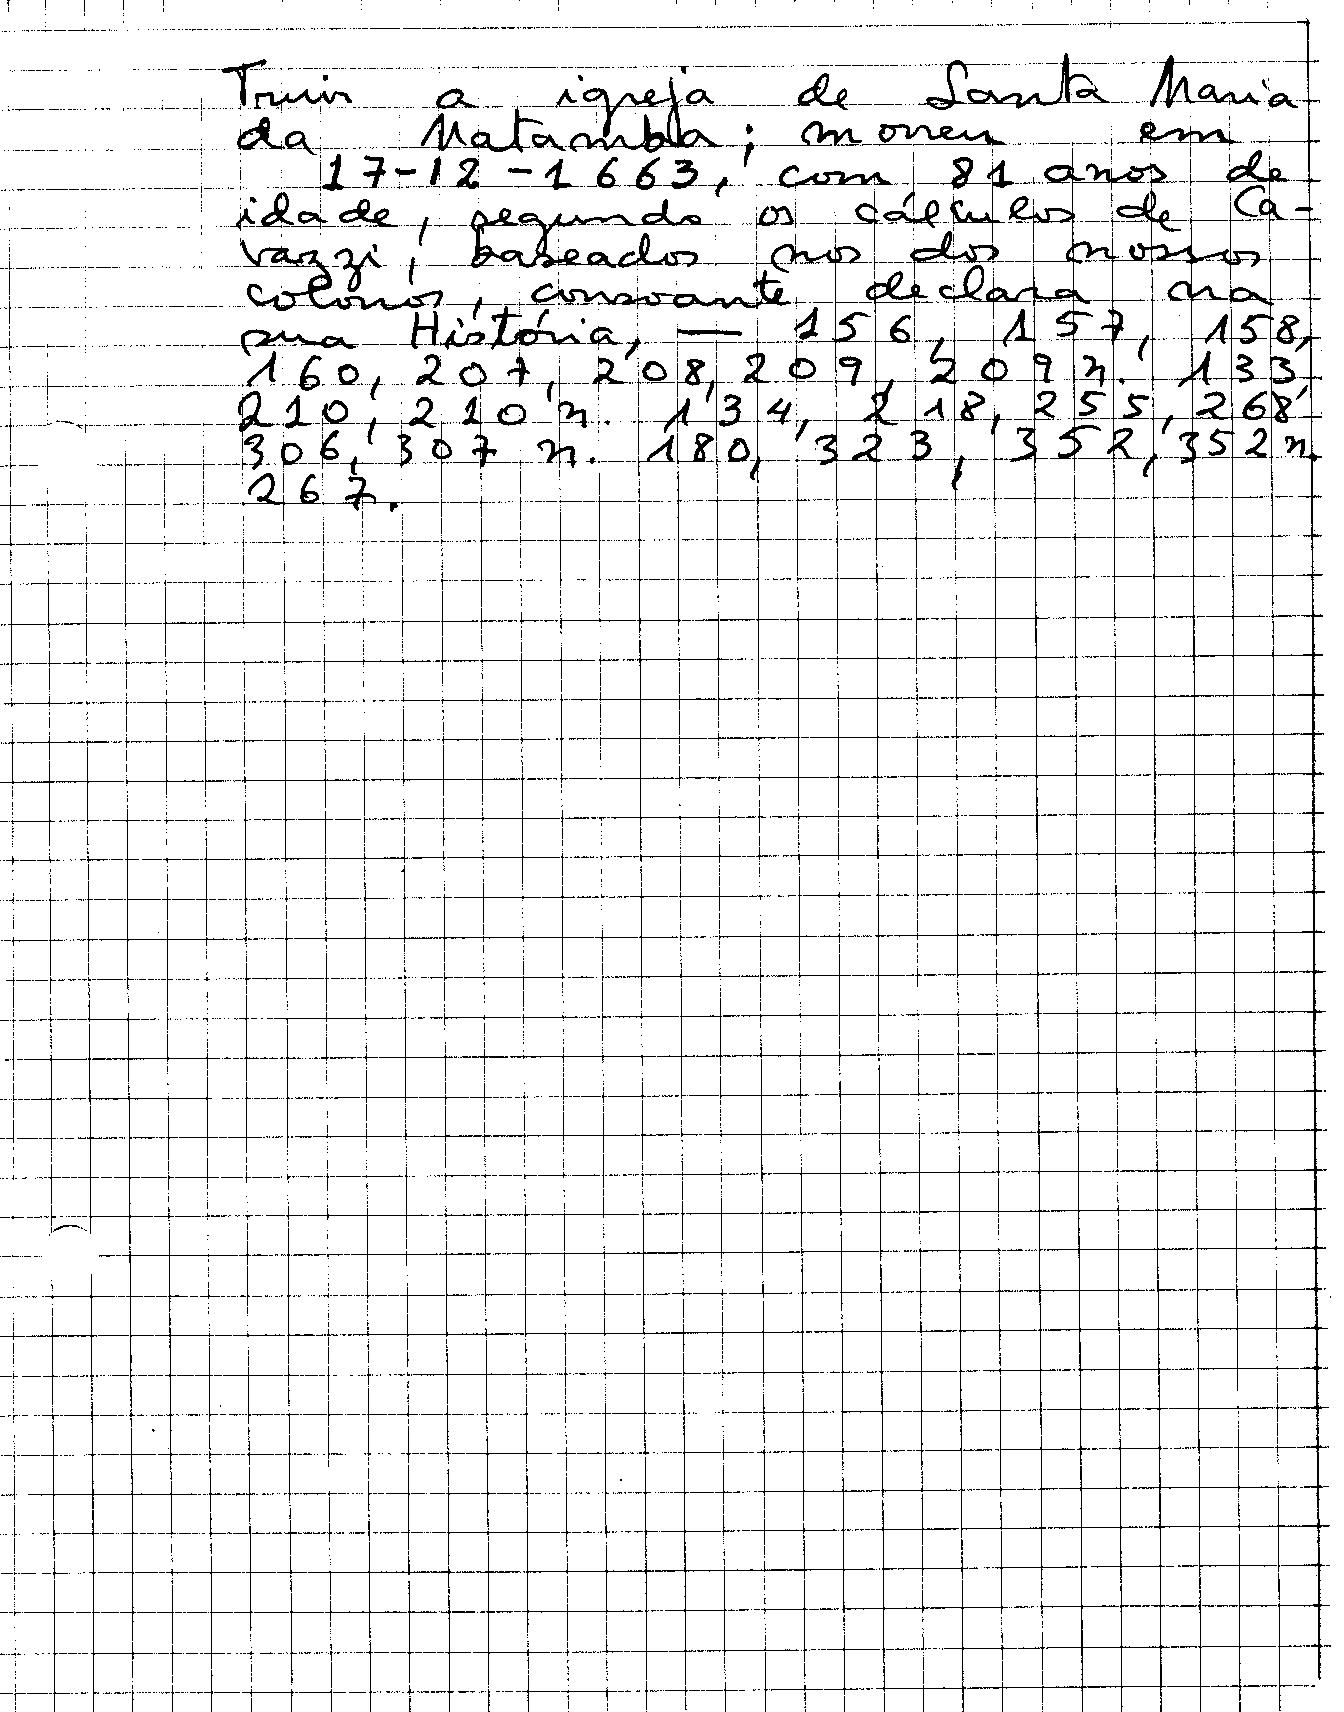 Truir a igreja de Santa Maria
da Matamba; morreu em
17-12-1663, com 81 anos de
idade, segundo os cálculos de Ca-
vazzi, baseados nos dos nossos
colonos, consoante declara na
sua História, — 156, 157, 158,
160, 207, 208, 209, 209 n. 133,
210, 210 n. 134, 218, 255, 268,
306, 307 n. 180, 323, 352, 352 n.
267.